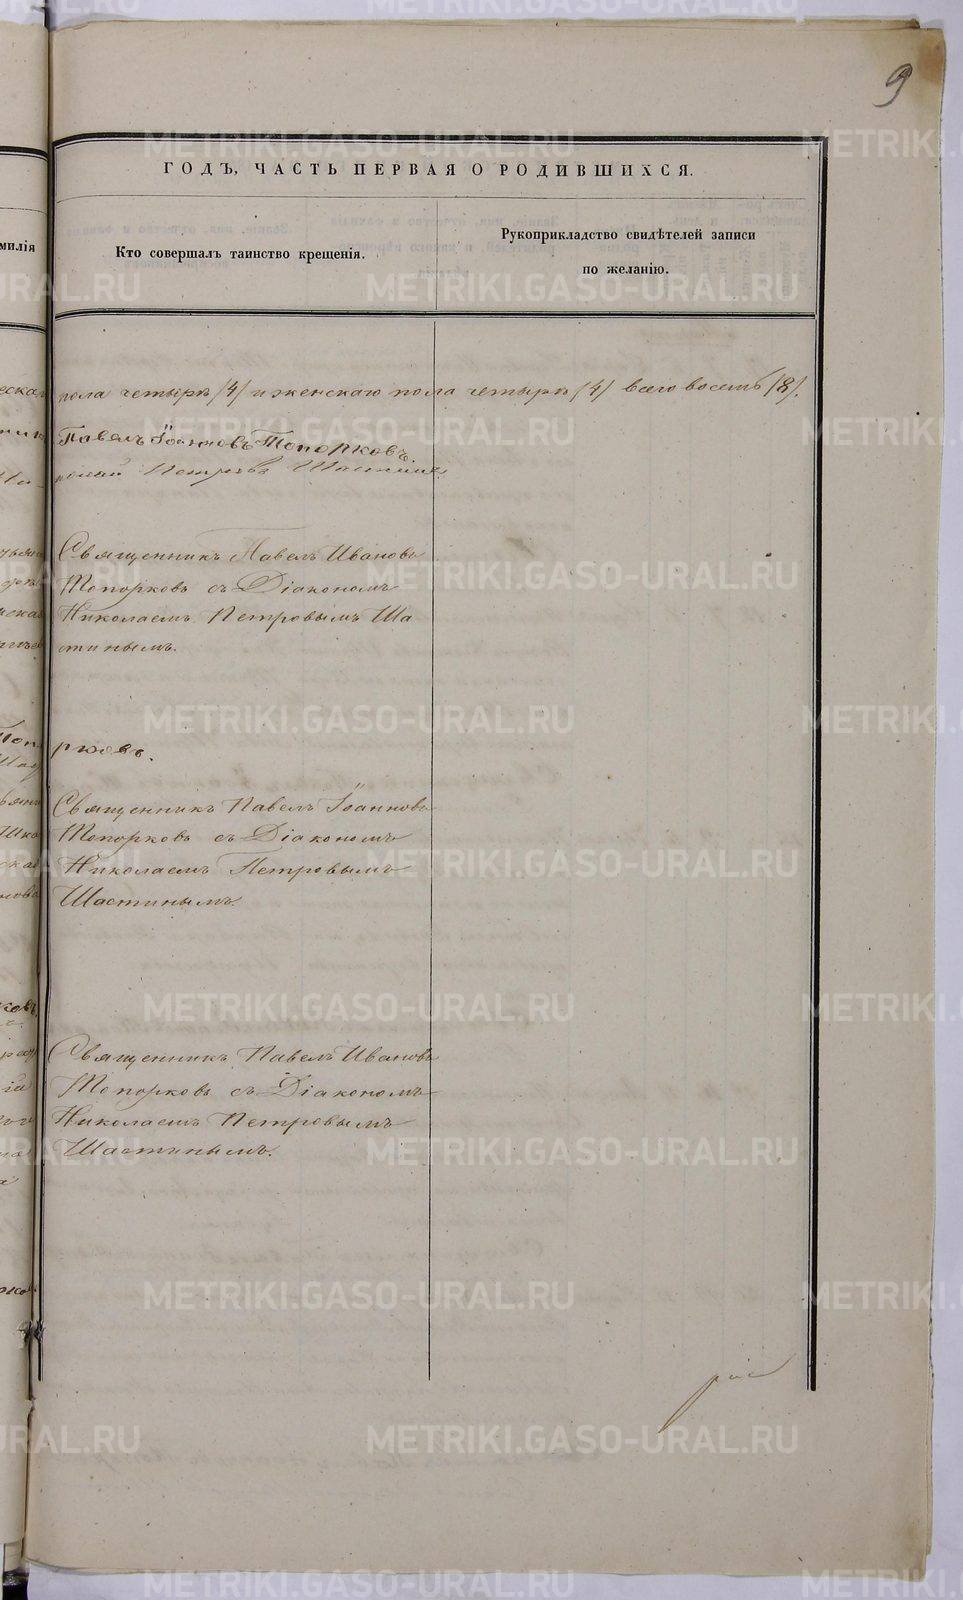 9
ГОДЪ, ЧАСТЬ ПЕРВАЯ О РОДИВШИХСЯ.
милія
Кто совершалъ таинство крещенія.
Рукоприкладство свидѣтелей записи
по желанію.
пола четыре /4/ и женскаго пола четыре /4/ всего восемь /8/.
Павелъ Іоанновъ Топорковъ.
колай Петровъ Шастинъ
Священникъ Павелъ Ивановъ
Топорковъ съ Діакономъ
Николаемъ Петровымъ Ша
стинымъ.
рковъ.
Священникъ Павелъ Іоанновъ
Топорковъ съ Діакономъ
Николаемъ Петровымъ
Шастинымъ.
Священникъ Павелъ Ивановъ
Топорковъ съ Діакономъ
Николаемъ Петровымъ
Шастинымъ.
METRIKI.GASO-URAL.RU